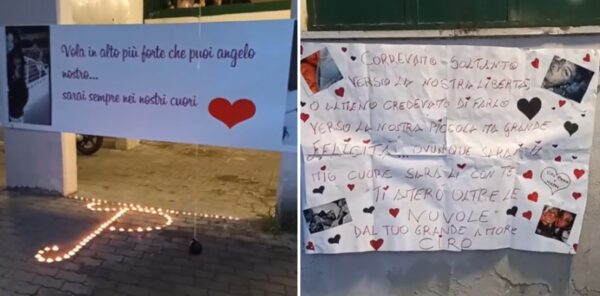 Vola in alto più forte che puoi angelo
nostro...
sarai sempre nei nostri cuori
CORREVATO SOLTANTO
VERSO LA NOSTRA LIBERTÀ,
O ALMENO CREDEVATO DI FARLO
VERSO LA NOSTRA PICCOLA MA GRANDE
FELICITÀ... OVUNQUE SARAI IL
MIO CUORE SARÀ LÌ CON TE
TI AMERÒ OLTRE LE
NUVOLE
DAL TUO GRANDE AMORE
CIRO